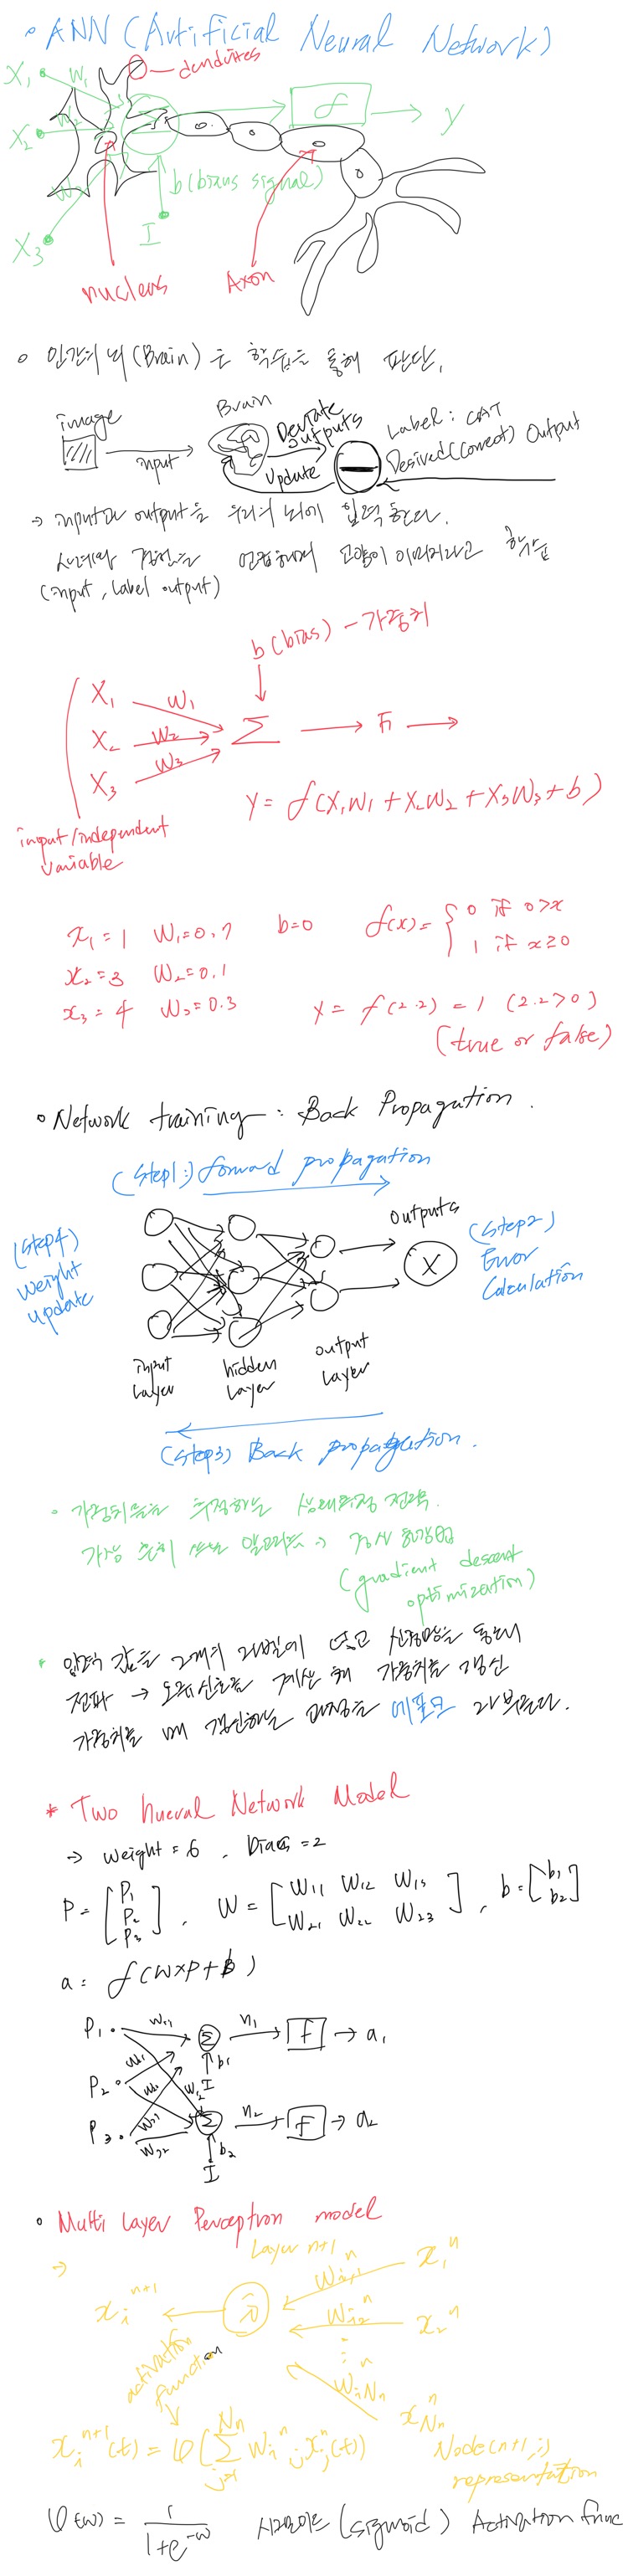 ◦ ANN (Artificial Neural Network)
dendrites
X1 W1
X2 W2
X3 W3
f → y
b (bians signal)
I
nucleus
Axon
◦ 인간의 뇌(Brain)는 학습을 통해 판단.
image
input
Brain
Deviate outputs
update
Label: CAT
Desired(Correct) Output
→ input과 output을 우리의 뇌에 입력한다.
고양이
(input, Label output)
b (bias) - 가중치
X1 W1
X2 W2
X3 W3
Σ
Y = f(X1W1 + X2W2 + X3W3 + b)
input/independent
variable
x1 = 1 W1=0.7 b=0 f(x) = { 0 if 0>x
1 if x≥0
x2=3 W2=0.1
x3=4 W3=0.3 Y = f(2.2) = 1 (2.2>0)
(true or false)
◦ Network training : Back Propagation.
(Step1:) forward propagation
(Step4)
weight
update
outputs
X
(Step2)
Error
Calculation
input
Layer
hidden
Layer
output
Layer
(Step3) Back propagation.
◦ 가중치들을 추정하는 전략.
가장 알고리즘 → 경사 하강법
(gradient descent
optimization)
* 입력 값을 2개의 넣고 신경망을 통해
전파 → 오류신호를 계산 해 가중치를 갱신
가중치를 매 갱신하는 과정을 에폭 라 부른다.
* Two nueral Network Model
→ weight = 6, bias = 2
P = [P1 P2 P3], W = [W11 W12 W13 W21 W22 W23], b = [b1 b2]
a = f(W×P+b)
P1
P2
P3
Σ n1 → f → a1
b1
I
Σ n2 → f → a2
b2
I
◦ Multi Layer Perceptron model
→
Layer n+1
xi^n+1
activation
function
Wi1^n x1^n
Wi2^n x2^n
WiNn^n xNn^n
xi^n+1(t) = φ(Σ j=1 Nn Wi^n j xj^n(t))
Node(n+1, i)
representation
φ(w) = 1 / (1+e^-w) 시그모이드 (sigmoid) Activation func